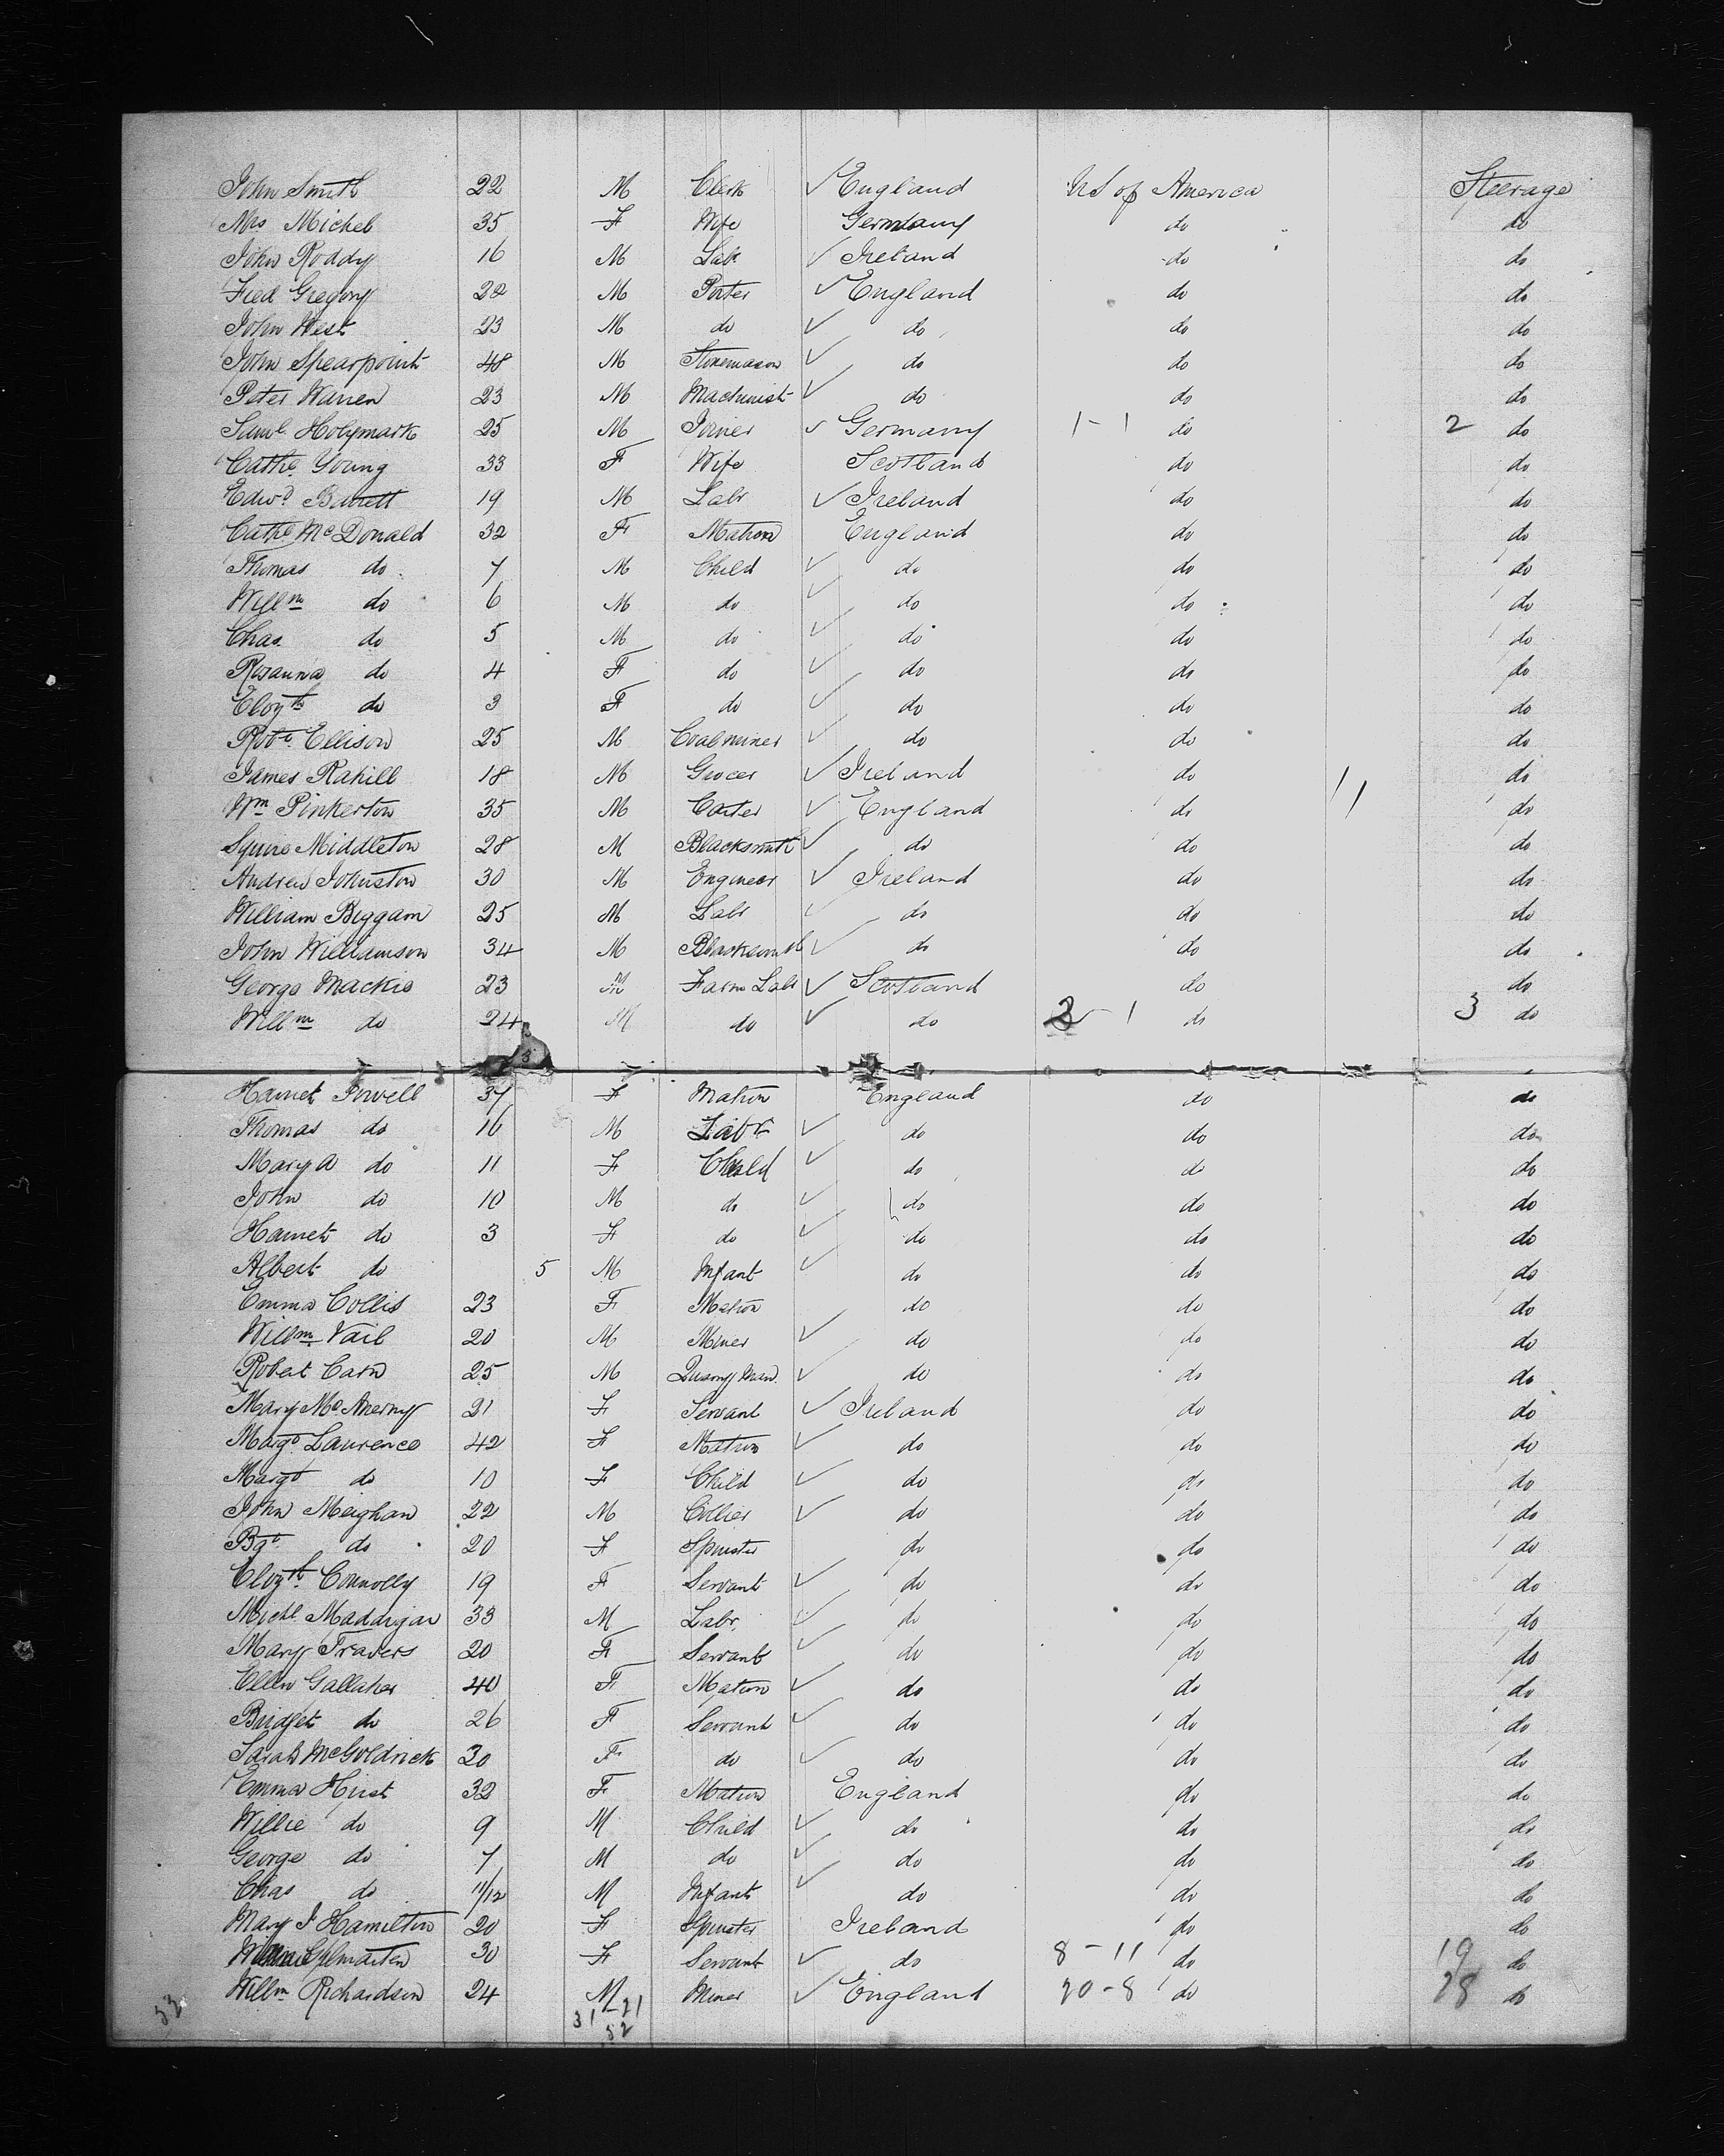 John Smith 22 M Clerk ✓ England US of America Steerage
Mrs Michel 35 F Wife Germany do do
John Roddy 16 M Labr ✓ Ireland do do
Fred Gregory 22 M Porter ✓ England do do
John West 23 M do ✓ do do do
John Spearpoint 48 M Stonemason ✓ do do do
Peter Warren 23 M Machinist ✓ do do do
Saml Holymark 25 M Joiner ✓ Germany 1-1 do 2 do
Cathe Young 33 F Wife Scotland do do
Edwd Barrett 19 M Labr ✓ Ireland do do
Cathe McDonald 32 F Matron England do do
Thomas do 7 M Child ✓ do do do
Willm do 6 M do ✓ do do do
Chas do 5 M do ✓ do do do
Rosanna do 4 F do ✓ do do do
Elozth do 3 F do ✓ do do do
Robt Ellison 25 M Coal miner ✓ do do do
James Rahill 18 M Grocer ✓ Ireland do 11 do
Wm Pinkerton 35 M Carter ✓ England do do
Squire Middleton 28 M Blacksmith ✓ do do do
Andrew Johnston 30 M Engineer ✓ Ireland do do
William Biggam 25 M Labr ✓ do do do
John Williamson 34 M Blacksmith ✓ do do do
George Mackie 23 M Farm Labr ✓ Scotland do do
Willm do 24 M do ✓ do 2-1 do 3 do
Harriet Powell 37 F Matron England do do
Thomas do 16 M Labr ✓ do do do
Mary A do 11 F Child ✓ do do do
John do 10 M do ✓ do do do
Harriet do 3 F do ✓ do do do
Albert do 5 M Infant ✓ do do do
Emma Collis 23 F Matron do do do
Willm Vail 20 M Miner ✓ do do do
Robert Carn 25 M Quarry Man ✓ do do do
Mary McAnerny 21 F Servant ✓ Ireland do do
Margt Laurence 42 F Matron ✓ do do do
Margt do 10 F Child ✓ do do do
John Meighan 22 M Collier ✓ do do do
Bgt do 20 F Spinster do do do
Elozth Connolly 19 F Servant ✓ do do do
Michl Maddigan 33 M Labr ✓ do do do
Mary Travers 20 F Servant ✓ do do do
Ellen Gallaher 40 F Matron ✓ do do do
Bridget do 26 F Servant ✓ do do do
Sarah McGoldrick 20 F do ✓ do do do
Emma Hirst 32 F Matron England do do
Willie do 9 M Child ✓ do do do
George do 7 M do ✓ do do do
Chas do 11/12 M Infant ✓ do do do
Mary J Hamilton 20 F Spinster Ireland do do
Gilmarten 30 F Servant ✓ do 8-11 do 19 do
Willm Richardson 24 M Miner ✓ England 20-8 do 28 do
31 21
52